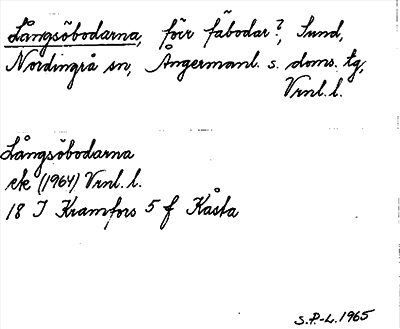 Långsöbodarna, förr fäbodar?, Sund,
Nordingrå sn, Ångermanl. s. doms. tg,
Vrnl. l.
Långsöbodarna
ek (1964) Vrnl. l.
18 I Kramfors 5 f Kåsta
S.P.-L. 1965